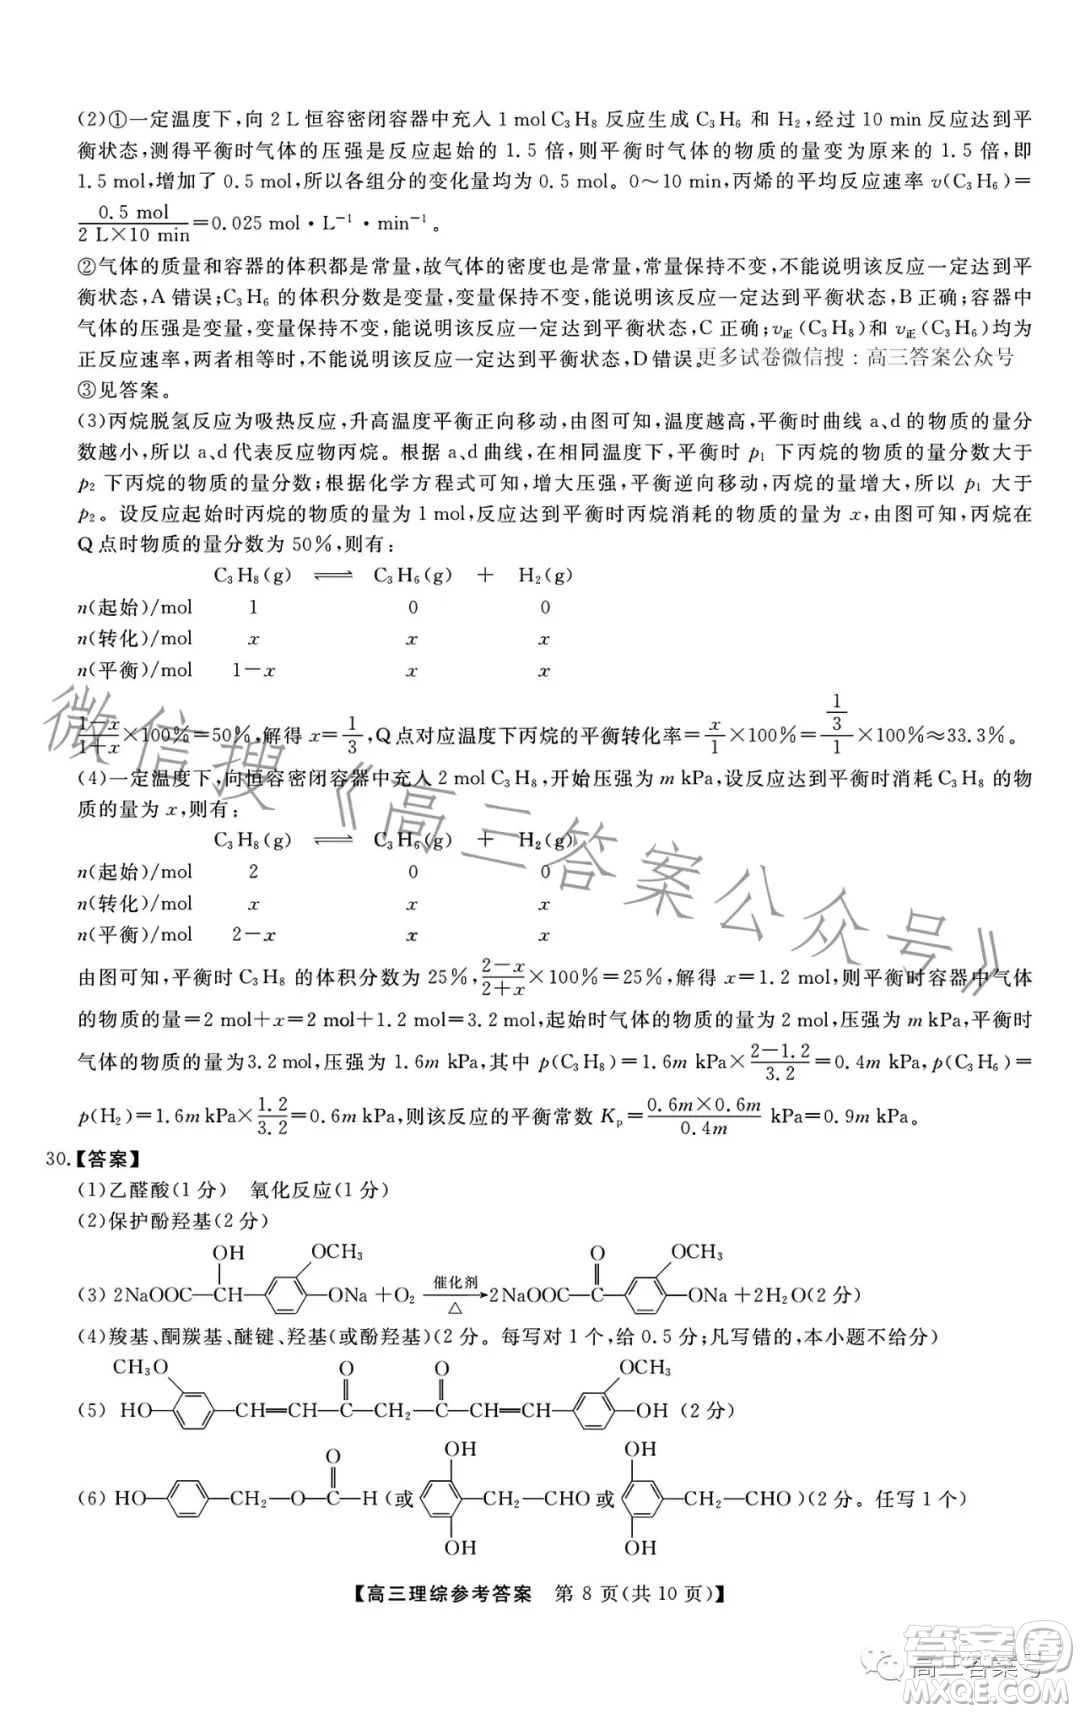 (2)①一定温度下,向 2 L 恒容密闭容器中充入 1 mol C₃H₈ 反应生成 C₃H₆ 和 H₂,经过 10 min 反应达到平
衡状态,测得平衡时气体的压强是反应起始的 1.5 倍,则平衡时气体的物质的量变为原来的 1.5 倍,即
1.5 mol,增加了 0.5 mol,所以各组分的变化量均为 0.5 mol。0～10 min,丙烯的平均反应速率 v(C₃H₆)=
0.5 mol/(2 L×10 min)=0.025 mol·L⁻¹·min⁻¹。
②气体的质量和容器的体积都是常量,故气体的密度也是常量,常量保持不变,不能说明该反应一定达到平
衡状态,A 错误;C₃H₆ 的体积分数是变量,变量保持不变,能说明该反应一定达到平衡状态,B 正确;容器中
气体的压强是变量,变量保持不变,能说明该反应一定达到平衡状态,C 正确;v正(C₃H₈)和 v正(C₃H₆)均为
正反应速率,两者相等时,不能说明该反应一定达到平衡状态,D 错误。更多试卷微信搜:高三答案公众号
③见答案。
(3)丙烷脱氢反应为吸热反应,升高温度平衡正向移动,由图可知,温度越高,平衡时曲线 a、d 的物质的量分
数越小,所以 a、d 代表反应物丙烷。根据 a、d 曲线,在相同温度下,平衡时 p₁ 下丙烷的物质的量分数大于
p₂ 下丙烷的物质的量分数;根据化学方程式可知,增大压强,平衡逆向移动,丙烷的量增大,所以 p₁ 大于
p₂。设反应起始时丙烷的物质的量为 1 mol,反应达到平衡时丙烷消耗的物质的量为 x,由图可知,丙烷在
Q 点时物质的量分数为 50%,则有:
C₃H₈(g) ⇌ C₃H₆(g) + H₂(g)
n(起始)/mol 1 0 0
n(转化)/mol x x x
n(平衡)/mol 1−x x x
(1−x)/(1+x)×100%=50%,解得 x=1/3,Q 点对应温度下丙烷的平衡转化率=x/1×100%=(1/3)/1×100%≈33.3%。
(4)一定温度下,向恒容密闭容器中充入 2 mol C₃H₈,开始压强为 m kPa,设反应达到平衡时消耗 C₃H₈ 的物
质的量为 x,则有:
C₃H₈(g) ⇌ C₃H₆(g) + H₂(g)
n(起始)/mol 2 0 0
n(转化)/mol x x x
n(平衡)/mol 2−x x x
由图可知,平衡时 C₃H₈ 的体积分数为 25%,(2−x)/(2+x)×100%=25%,解得 x=1.2 mol,则平衡时容器中气体
的物质的量=2 mol+x=2 mol+1.2 mol=3.2 mol,起始时气体的物质的量为 2 mol,压强为 m kPa,平衡时
气体的物质的量为3.2 mol,压强为 1.6m kPa,其中 p(C₃H₈)=1.6m kPa×(2−1.2)/3.2=0.4m kPa,p(C₃H₆)=
p(H₂)=1.6m kPa×1.2/3.2=0.6m kPa,则该反应的平衡常数 Kp=(0.6m×0.6m)/0.4m kPa=0.9m kPa。
30.【答案】
(1)乙醛酸(1 分) 氧化反应(1 分)
(2)保护酚羟基(2 分)
OH OCH₃ O OCH₃
(3) 2NaOOC—CH— —ONa +O₂ 催化剂 △ 2NaOOC—C— —ONa +2H₂O(2 分)
(4)羧基、酮羰基、醚键、羟基(或酚羟基)(2 分。每写对 1 个,给 0.5 分;凡写错的,本小题不给分)
CH₃O O O OCH₃
(5) HO— —CH=CH—C—CH₂—C—CH=CH— —OH (2 分)
O OH OH
(6) HO— —CH₂—O—C—H (或 —CH₂—CHO 或 —CH₂—CHO )(2 分。任写 1 个)
OH OH
【高三理综参考答案 第 8 页(共 10 页)】
微信搜《高三答案公众号》
高三答案号
答案圈
MXQE.COM